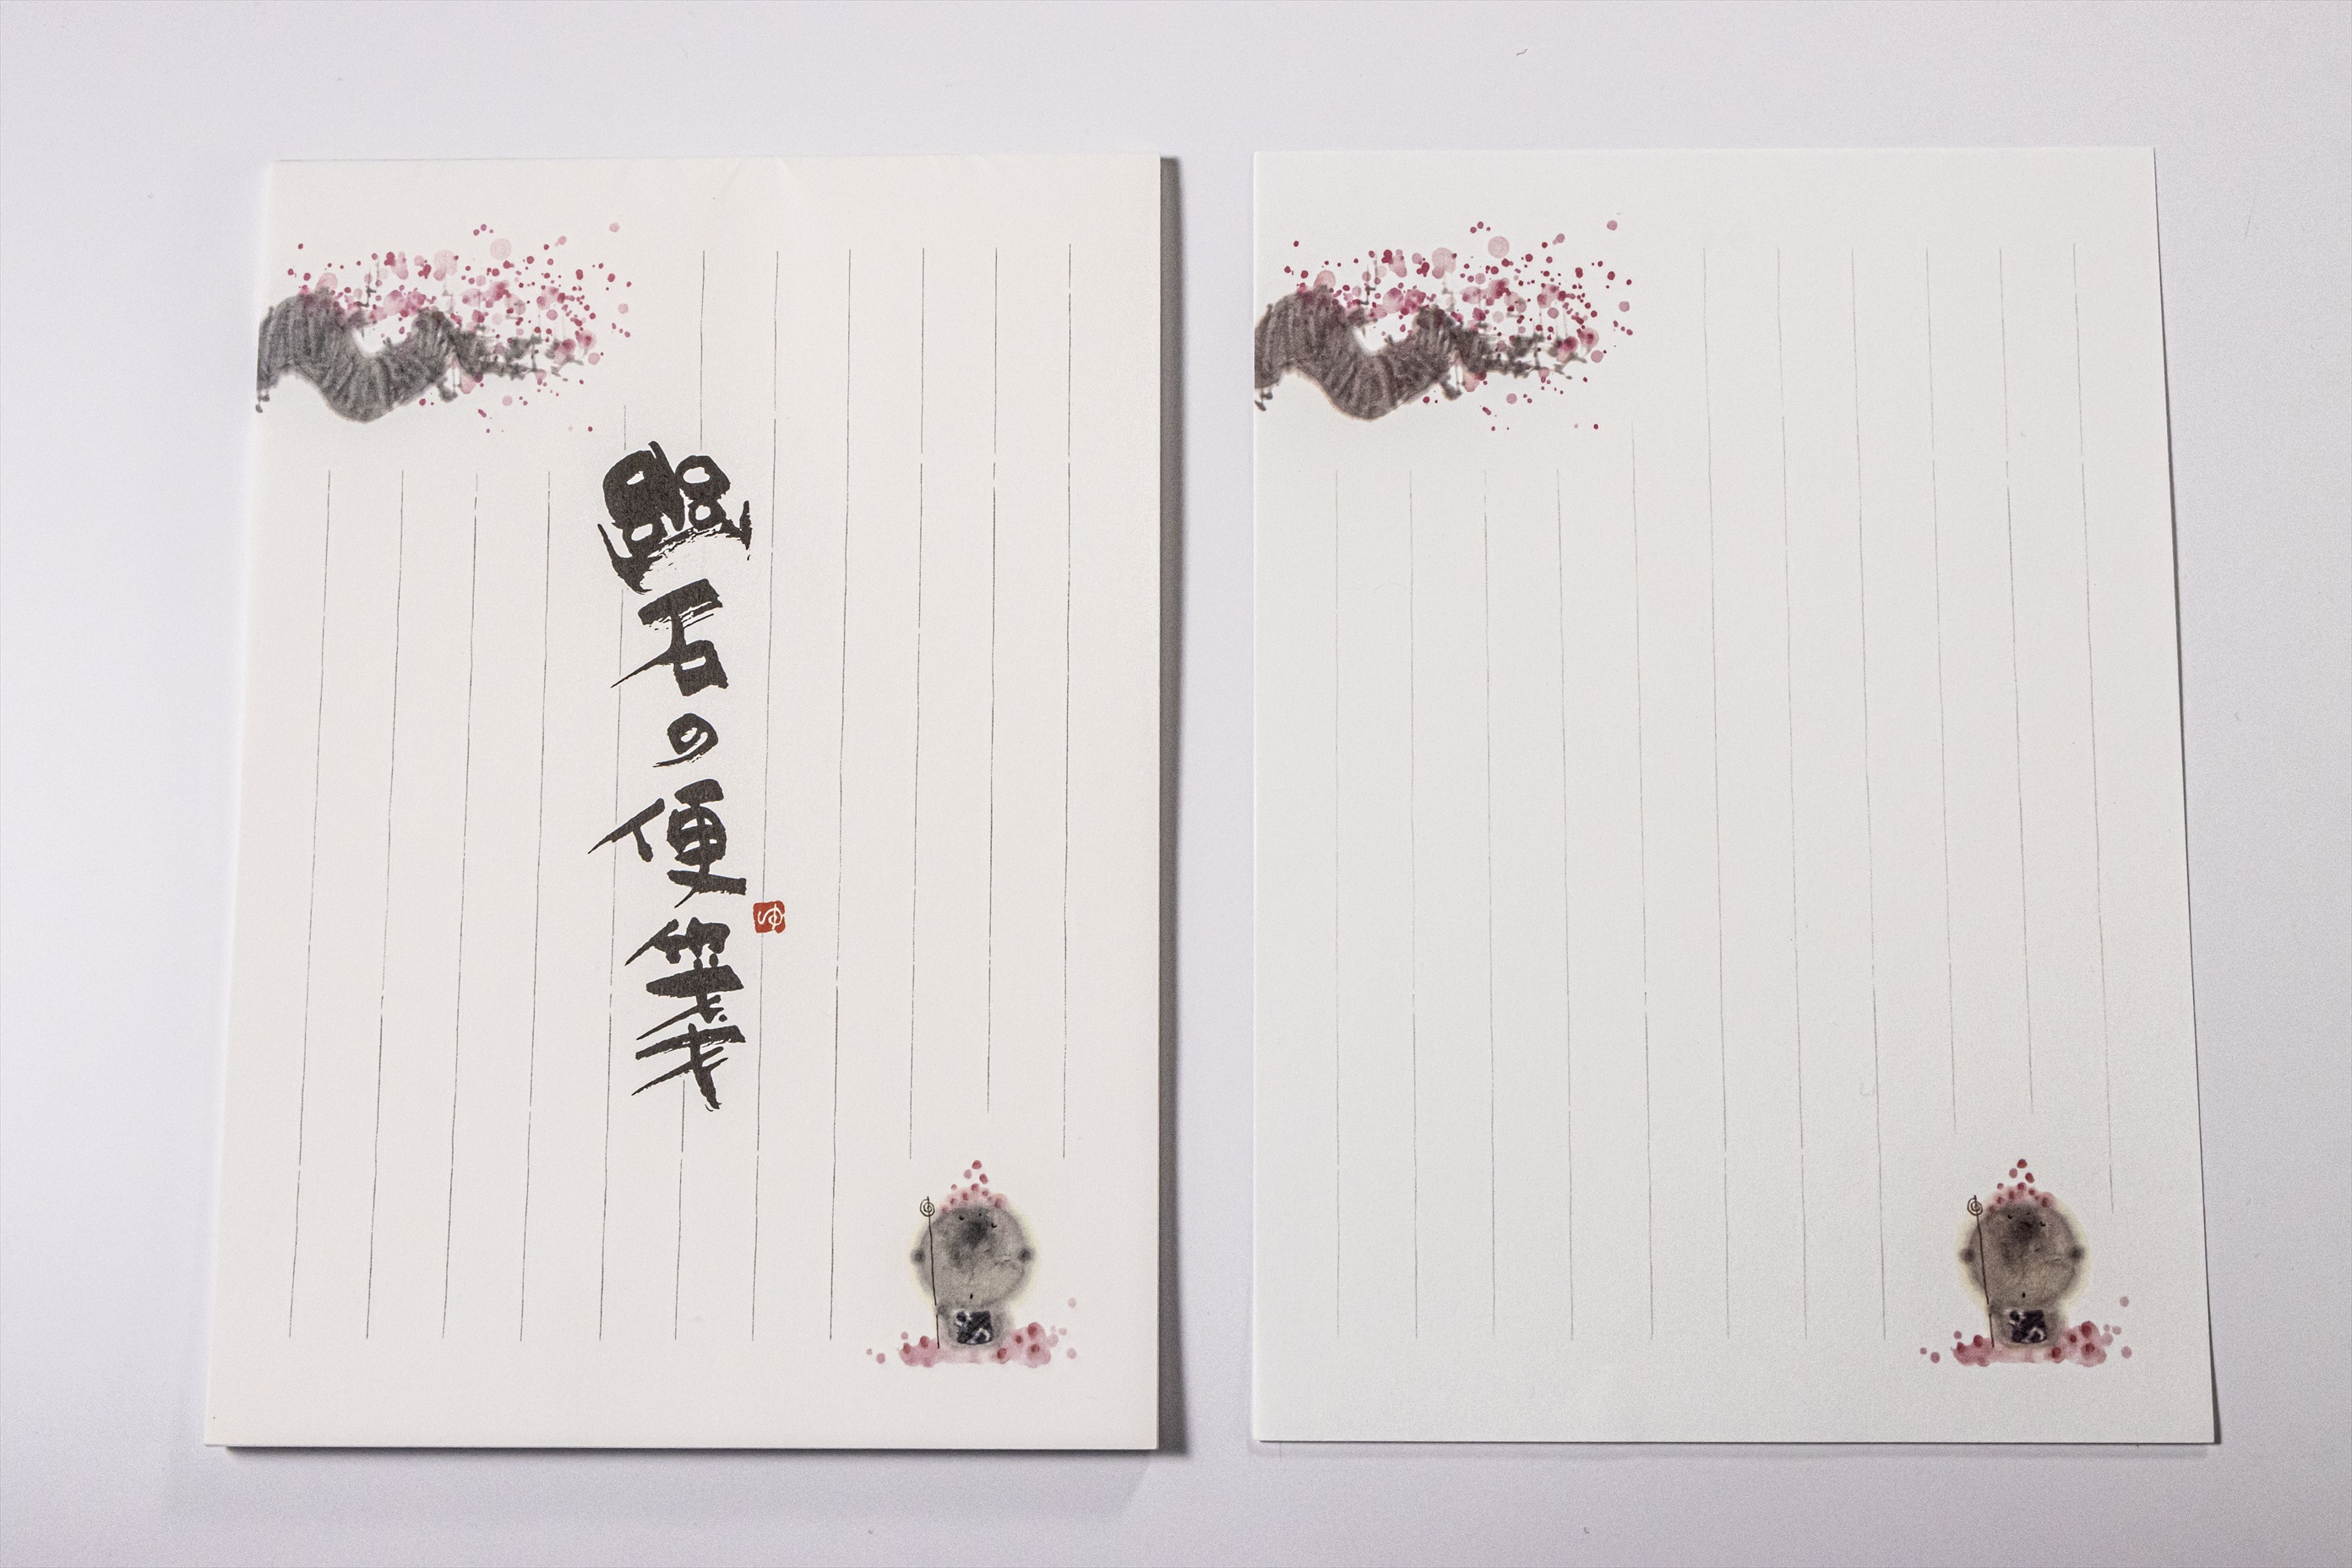 幽石の便箋